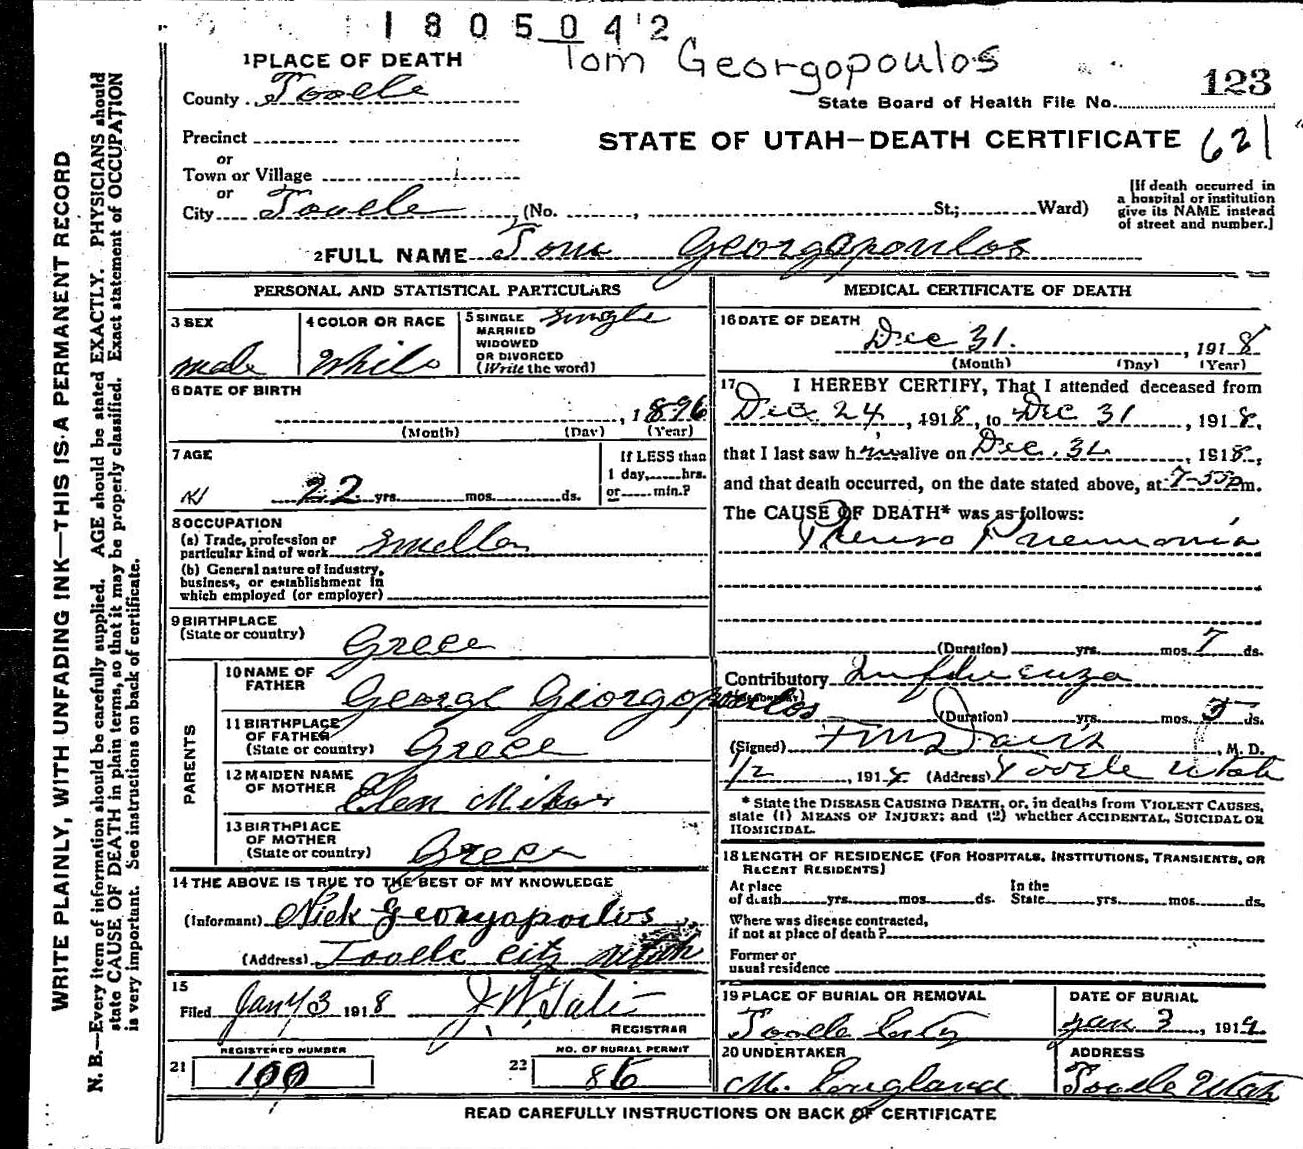 1805042
Tom Georgopoulos
1 PLACE OF DEATH
County Tooele
123
State Board of Health File No.
Precinct
STATE OF UTAH—DEATH CERTIFICATE 621
or
Town or Village
or
City Tooele (No. , St.; Ward)
[If death occurred in
a hospital or institution
give its NAME instead
of street and number.]
2 FULL NAME Tom Georgopoulos
PERSONAL AND STATISTICAL PARTICULARS
3 SEX
male
4 COLOR OR RACE
White
5 SINGLE
MARRIED
WIDOWED
OR DIVORCED
(Write the word)
single
6 DATE OF BIRTH
, 1896
(Month) (Day) (Year)
7 AGE
22 yrs. mos. ds.
If LESS than
1 day, hrs.
or min.?
8 OCCUPATION
(a) Trade, profession or
particular kind of work
(b) General nature of Industry,
business, or establishment in
which employed (or employer)
9 BIRTHPLACE
(State or country)
Greece
PARENTS
10 NAME OF
FATHER
George Giorgopoulos
11 BIRTHPLACE
OF FATHER
(State or country)
Greece
12 MAIDEN NAME
OF MOTHER
Elen
13 BIRTHPLACE
OF MOTHER
(State or country)
Greece
14 THE ABOVE IS TRUE TO THE BEST OF MY KNOWLEDGE
(Informant) Nick Georgopoulos
(Address) Tooele City Utah
15
Filed Jany 3 1918
REGISTRAR
21 REGISTERED NUMBER
100
22 NO. OF BURIAL PERMIT
86
MEDICAL CERTIFICATE OF DEATH
16 DATE OF DEATH
Dec 31. , 1918
(Month) (Day) (Year)
17 I HEREBY CERTIFY, That I attended deceased from
Dec. 24, 1918, to Dec 31, 1918,
that I last saw him alive on Dec. 31, 1918,
and that death occurred, on the date stated above, at 7-55 Pm.
The CAUSE OF DEATH* was as follows:
Pleuro Pneumonia
(Duration) yrs. mos. 7 ds.
Contributory Influenza
(Duration) yrs. mos. 5 ds.
(Signed) Davis, M. D.
1/2, 191 (Address) Tooele Utah
* State the DISEASE CAUSING DEATH, or, in deaths from VIOLENT CAUSES,
state (1) MEANS OF INJURY; and (2) whether ACCIDENTAL, SUICIDAL OR
HOMICIDAL.
18 LENGTH OF RESIDENCE (FOR HOSPITALS, INSTITUTIONS, TRANSIENTS, OR
RECENT RESIDENTS)
At place
of death yrs. mos. ds.
In the
State yrs. mos. ds.
Where was disease contracted,
if not at place of death?
Former or
usual residence
19 PLACE OF BURIAL OR REMOVAL
Tooele City
DATE OF BURIAL
Jan 3, 1919
20 UNDERTAKER
M. England
ADDRESS
Tooele Utah
READ CAREFULLY INSTRUCTIONS ON BACK OF CERTIFICATE
WRITE PLAINLY, WITH UNFADING INK—THIS IS A PERMANENT RECORD
N. B.—Every item of information should be carefully supplied. AGE should be stated EXACTLY. PHYSICIANS should
state CAUSE OF DEATH in plain terms, so that it may be properly classified. Exact statement of OCCUPATION
is very important. See instructions on back of certificate.